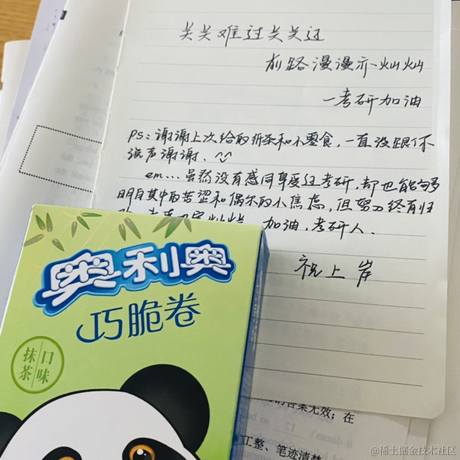 关关难过关关过
前路漫漫亦灿灿
—考研加油
PS：谢谢上次给的和小零食，一直没跟你
说声谢谢.
em...虽然没有感同身受过考研,却也能够
明白其中的苦涩和偶尔的小焦虑,但努力终有归
加油,考研人.
祝上岸
奥利奥
巧脆卷
抹茶口味
答案无效；在
工整、笔迹清楚
@稀土掘金技术社区